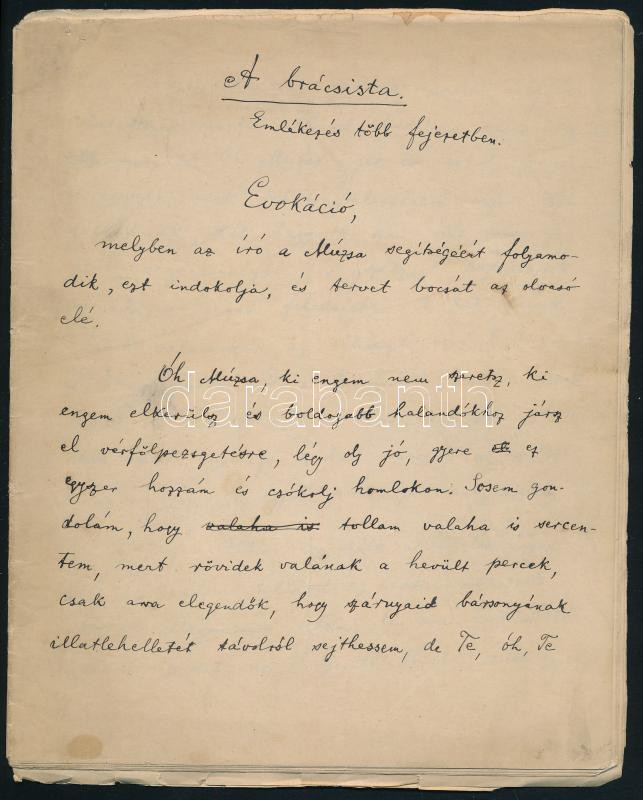 A brácsista.
Emlékezés több fejezetben.
Evokáció,
melyben az író a Múzsa segítségéért folyamo-
dik, ezt indokolja, és tervet bocsát az olvasó
elé.
Óh Múzsa, ki engem nem szeretsz, ki
engem elkerülsz és boldogabb halandókhoz jársz
el vérfölpezsgetésre, légy oly jó, gyere ez
egyszer hozzám és csókolj homlokon. Sosem gon-
dolám, hogy valaha is tollam valaha is sercen-
tem, mert rövidek valának a hevült percek,
csak arra elegendők, hogy szárnyaid bársonyának
illatlehelletét távolról sejthessem, de Te, óh, Te
darabanth